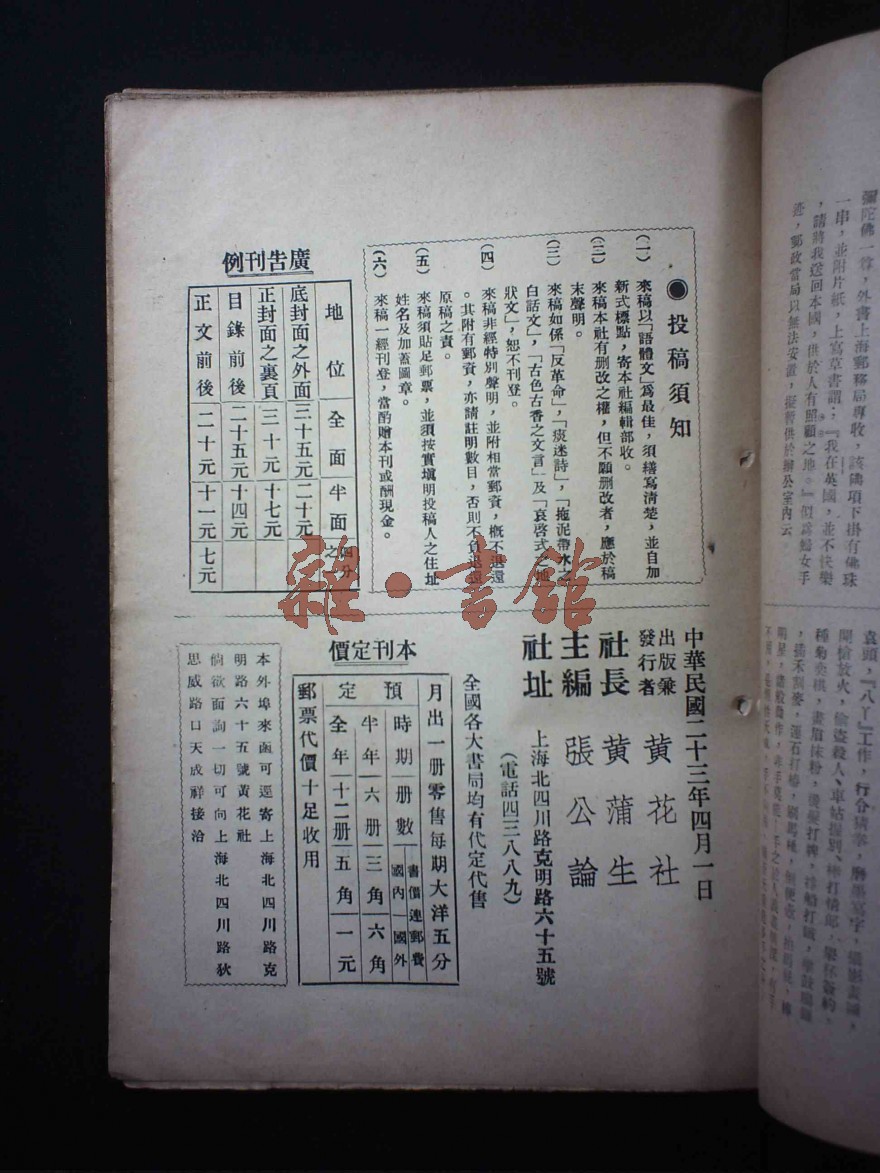 彌陀佛一尊，外書上海郵務局專收，該鐫項下掛有佛珠
一串，並附片紙，上寫草書謂：『我在英國，並不快樂
，請將我送回本國，供於人有照顧之地。』似爲婦女手
迹，郵政當局以無法安置，擬暫供於辦公室內云。
●投稿須知
(一) 來稿以「語體文」爲最佳，須繕寫清楚，並自加
新式標點，寄本社編輯部收。
(二) 來稿本社有删改之權，但不願删改者，應於稿
末聲明。
(三) 來稿如係「反革命」，「痰迷詩」，「拖泥帶水之
白話文」，「古色古香之文言」及「哀啓式之
狀文」，恕不刊登。
(四) 來稿非經特別聲明，並附相當郵資，槪不退還
。其附有郵資，亦請註明數目，否則不負退還
原稿之責。
(五) 來稿須貼足郵票，並須按實塡明投稿人之住址
姓名及加蓋圖章。
(六) 來稿一經刊登，當酌贈本刊或酬現金。
廣告刊例
地位 全面 半面 四分之一
底封面之外面 三十五元 二十元
正封面之裏頁 三十元 十七元
目錄前後 二十五元 十四元
正文前後 二十元 十一元 七元
中華民國二十三年四月一日
出版兼發行者 黃花社
社長 黃蒲生
主編 張公論
社址 上海北四川路克明路六十五號
(電話四三八八九)
全國各大書局均有代定代售
本刊定價
月出一册零售每期大洋五分
預定 時期 册數 書價連郵費 國內 國外
半年 六册 三角 六角
全年 十二册 五角 一元
郵票代價十足收用
本外埠來函可逕寄上海北四川路克
明路六十五號黃花社
倘欲面詢一切可向上海北四川路狄
思威路口天成祥接洽
雜·書館